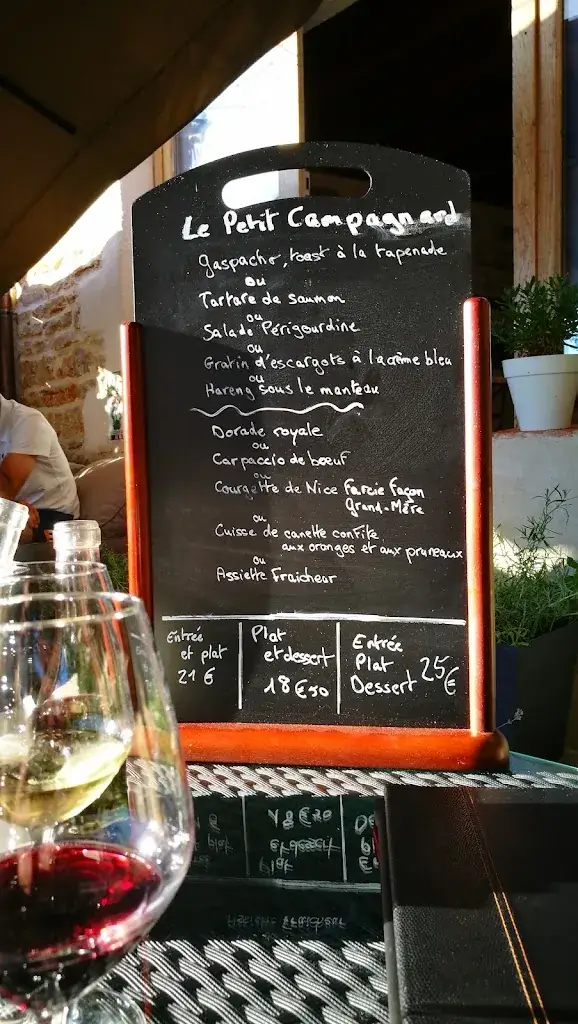 Le Petit Campagnard
gaspacho, toast à la tapenade
ou
Tartare de saumon
ou
Salade Périgourdine
ou
Gratin d'escargots à la crème bleu
ou
Hareng sous le manteau
Dorade royale
ou
Carpaccio de bœuf
ou
Courgette de Nice Farcie Façon
Grand-Mère
ou
Cuisse de canette confite
aux oranges et aux pruneaux
ou
Assiette Fraicheur
Entrée
et plat
21 €
Plat
et dessert
18 €50
Entrée
Plat
Dessert 25 €